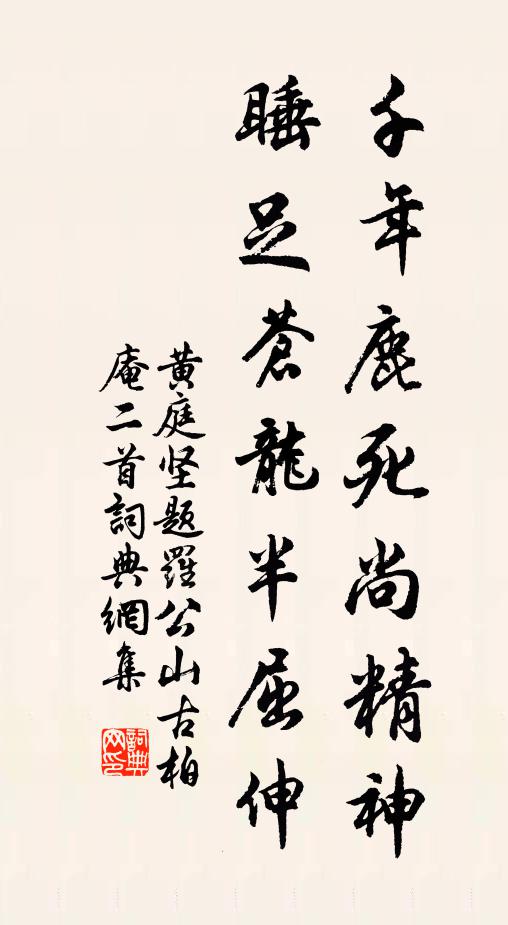 千年鹿死尚精神
睡足蒼龍半屈伸
黄庭坚題羅公山古柏
庵二首詞典網集
詞典网印